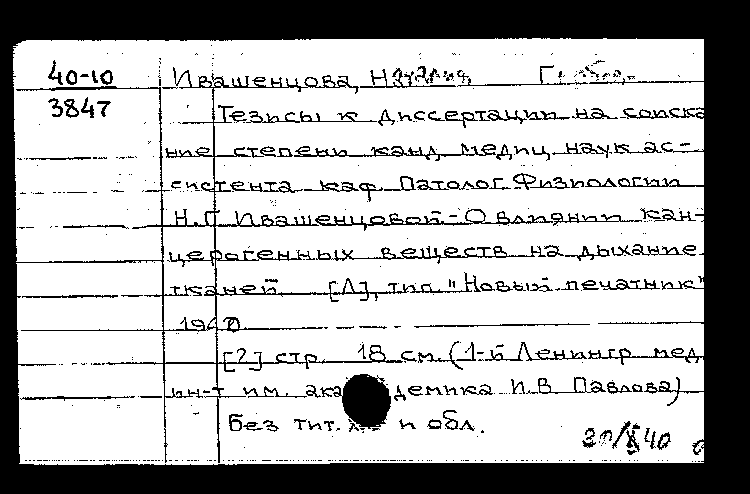 40-10
3847
Ивашенцова, Наталия Г
Тезисы к диссертации на соиска
ние степени канд. медиц. наук ас-
систента каф. Патолог. Физиологии
Н.Г. Ивашенцовой - О влиянии кан-
церогенных веществ на дыхание
тканей. [Л], тип. "Новый печатник"
1940
[2] стр. 18 см. (1-й Ленингр. мед.
ин-т им. академика И.В. Павлова)
Без тит. л. и обл.
30/X 40